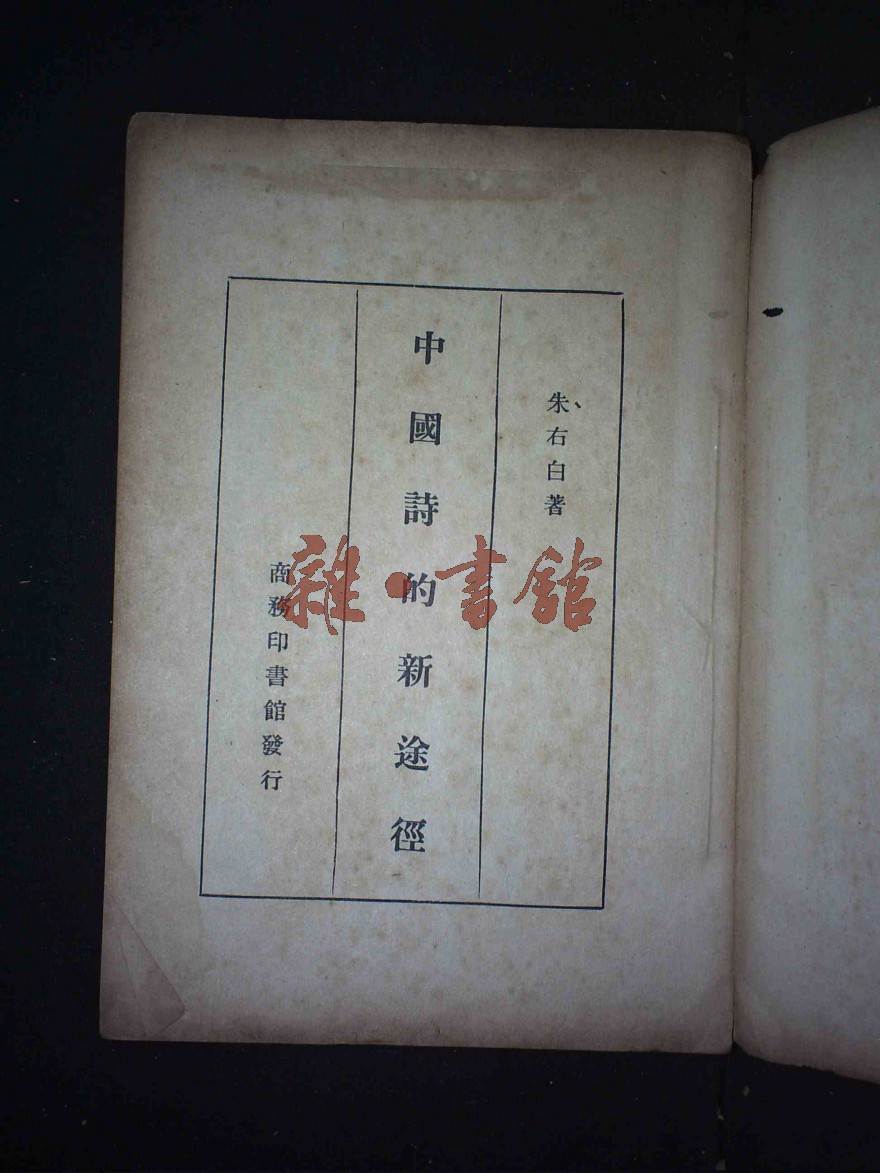 朱右白著
中國詩的新途徑
商務印書館發行
雜·書館